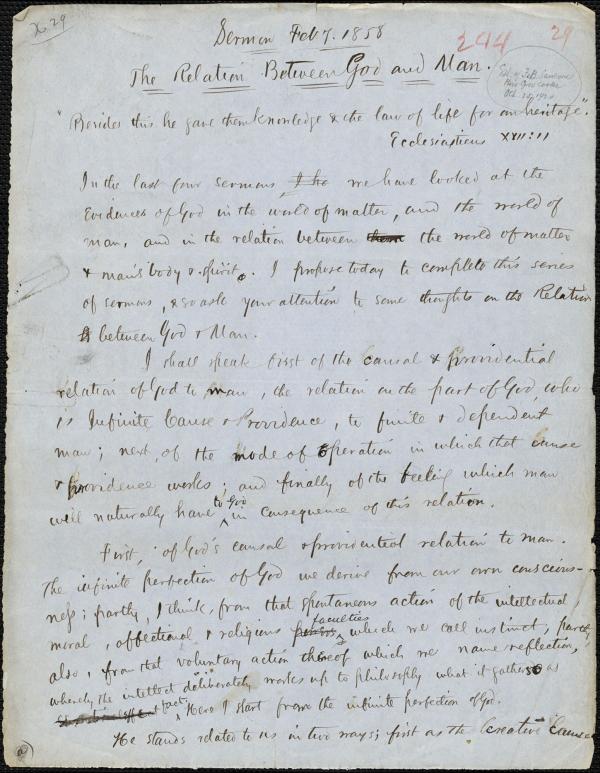 X. 29
Sermon Feb 7. 1858
294 29
The Relation Between God and Man.
Oct.
"Besides this he gave them knowledge & the law of life for an heritage".
Ecclesiasticus XVII:11
In the last four sermons we have looked at the
Evidences of God in the world of matter, and the world of
man, and in the relation between them the world of matter
& man's body & spirit. I propose today to complete this series
of sermons, & so ask your attention to some thoughts on the Relation
between God & Man.
I shall speak first of the causal & providential
relation of God to man, the relation on the part of God, who
is Infinite Cause & Providence, to finite & dependent
man; next, of the mode of operation in which that cause
& providence works; and finally of the feeling which man
will naturally have to God in consequence of this relation.
First, of God's causal & providential relation to man.
The infinite perfection of God we derive from our own conscious-
ness; partly, I think, from that spontaneous action of the intellectual,
moral, affectional & religious powers faculties which we call instinct, partly
also, from that voluntary action thereof which we name reflection,
whereby the intellect deliberately works up to philosophy what it gathers as
fact. Here I start from the infinite perfection of God.
He stands related to us in two ways; first as the Creative Cause